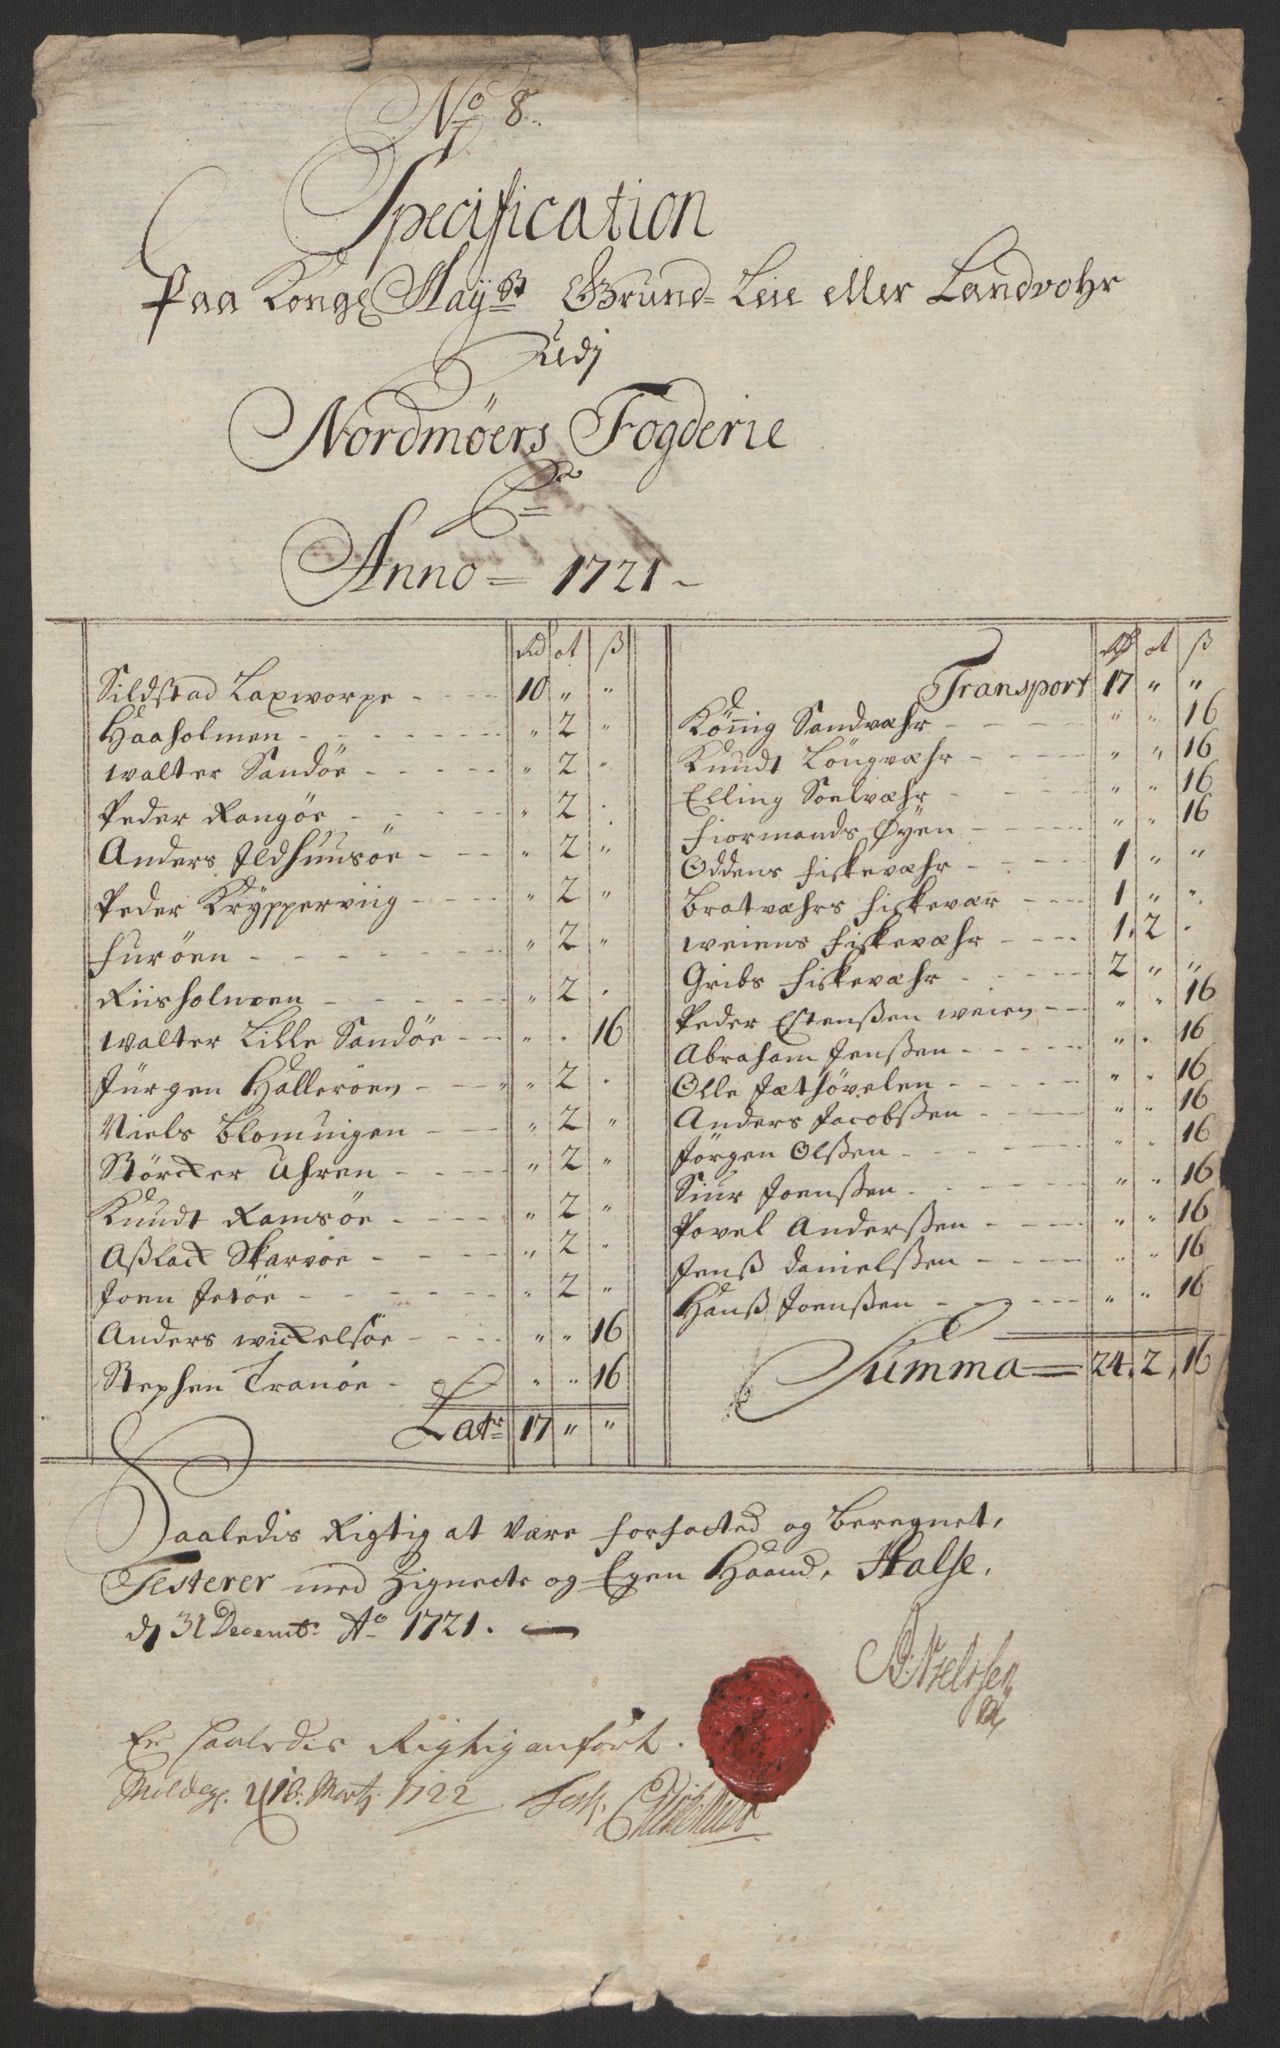 No 8.
Specification
Paa Kongl May.st Grund= Leie eller Landvohr
Udj
Nordmöers Fogderie
Pr
Anno = 1721 –
Rd ort ß
Sildstad Laxworpe - - - 10 " "
Haaholmen - - - " 2 "
Walter Sandöe - - - " 2 "
Peder Rangöe - - - " 2 .
Anders Ildhuusöe - - - " 2 "
Peder Kryppervüg - - - " 2 "
Furöen - - - " 2 "
Riisholmen - - - " 2 .
Walter Lille Sandöe - - - " . 16
Jürgen Halleröen - - - " 2 .
Niels Blomvigen - - - " 2 "
Störcker Uhren - - - " 2 "
Knudt Ramsöe - - - " 2 "
Aßlack Skarvöe - - - " 2 "
Joen Jetöe - - - " 2 "
Anders Wickelsöe - - - " " 16
Stephen Tranöe - - - " " 16
Latr 17 " "
Rd ort ß
Transport 17 " "
König Sandvæhr - - - " " 16
Knudt Löngvæhr - - - " " 16
Elling Soelvæhr - - - " " 16
Fiormands Øyen - - - " " 16
Oddens Fiskevæhr - - - 1 " "
Bratvæhrs Fiskevær - - - 1 " "
Weiens Fiskevæhr - - - 1. 2 .
Gribs Fiskevæhr - - - 2 " "
Peder Estenßen Weien - - - " " 16
Abraham Jenßen - - - " . 16
Olle Jæthövelen - - - " " 16
Anders Jacobßen - - - " " 16
Jörgen Olßen - - - " " 16
Siur Joenßen - - - " " 16
Povel Anderßen - - - " " 16
Jenß Danielßen - - - " " 16
Hanß Joenßen - - - " " 16
Summa = 24. 2. 16
Saaledis Rigtig at være forfatted og beregnet,
Testerer med Zignete og Egen Haand, Halse,
dj 31 Decembr Ao 1721. —
Er saaledis Rigtig anfört.
Moldeg. d 18. Martj 1722 Test.